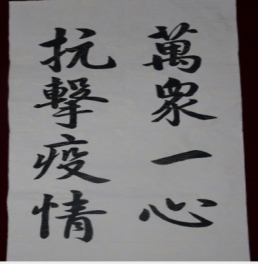 萬衆一心
抗擊疫情